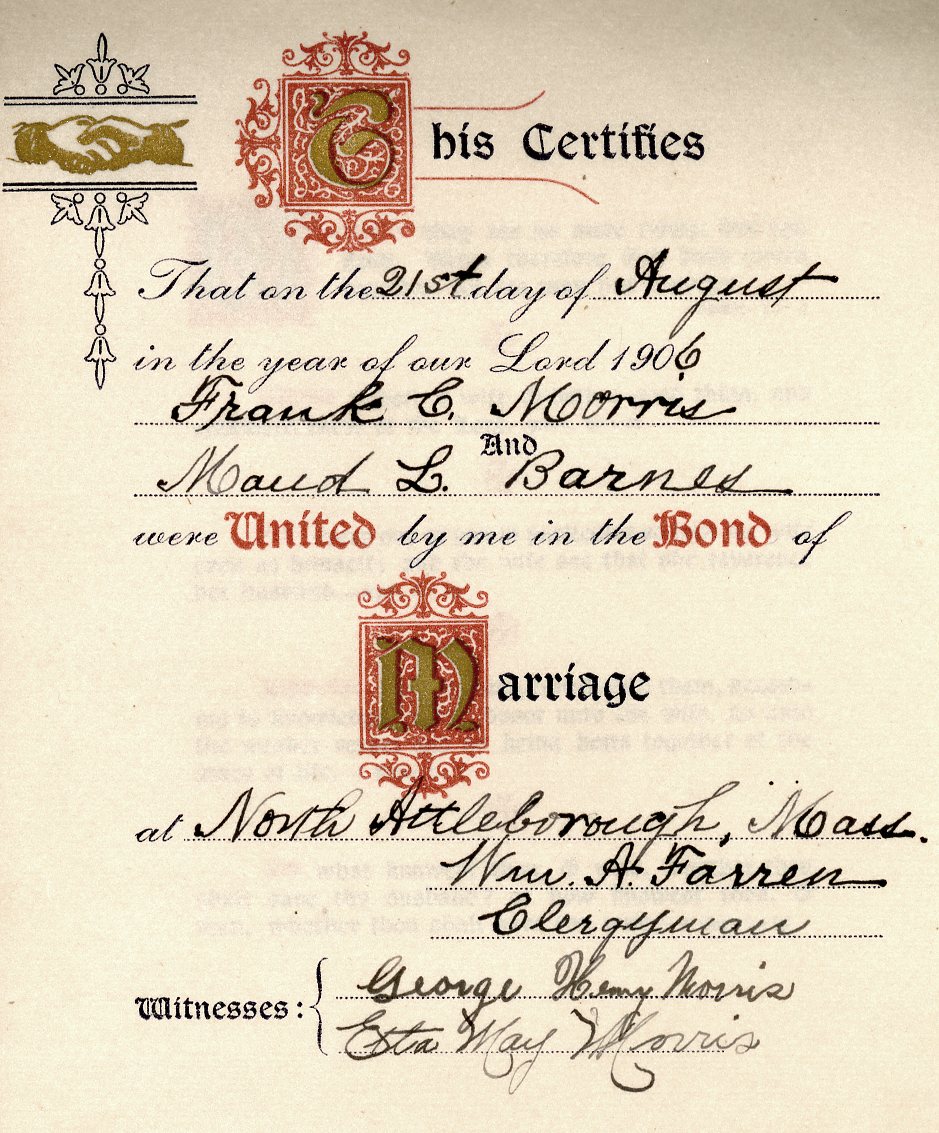 This Certifies
That on the 21st day of August
in the year of our Lord 1906
Frank C. Morris
And
Maud L. Barnes
were United by me in the Bond of
Marriage
at North Attleborough, Mass.
Wm. A. Farren
Clergyman
Witnesses: George Henry Morris
Etta May Morris